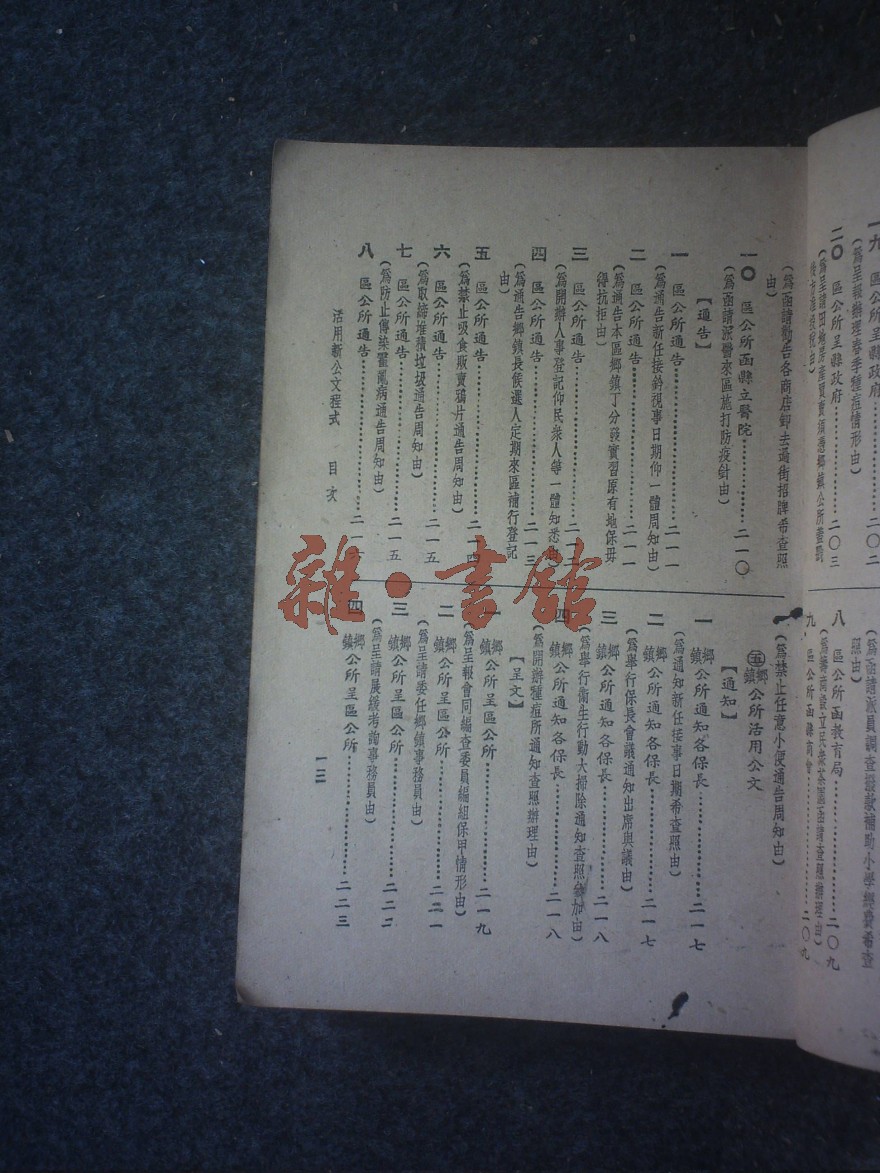 一九 區公所呈縣政府……二〇二
(爲呈報辦理春季種痘情形由)
二〇 區公所呈縣政府……二〇三
八 區公所函教育局……二〇九
九 區公所函縣商會……二〇九
(爲函請勸告各商店卸去過街招牌希查照
由)
一〇 區公所函縣立醫院……二一〇
(爲函請派醫來區施打防疫針由)
【通告】
一 區公所通告……二一一
(爲通告新任接鈐視事日期仰一體周知由)
二 區公所通告……二一一
(爲通告本區鄉鎮丁分發實習原有地保毋
得抗拒由)
三 區公所通告
(爲開辦人事登記仰民衆人等一體知悉由)
四 區公所通告……二一三
(爲通告鄉鎮長候選人定期來區補行登記
由)
五 區公所通告……二一四
(爲禁止吸食販賣鴉片通告周知由)
六 區公所通告……二一五
(爲取締堆積垃圾通告周知由)
七 區公所通告……二一五
(爲防止傳染霍亂病通告周知由)
八 區公所通告
(爲禁止任意小便通告周知由)
五 鄉鎮公所活用公文
【通知】
一 鄉鎮公所通知各保長……二一七
(爲通知新任接事日期希查照由)
二 鄉鎮公所通知各保長……二一七
(爲舉行保長會議通知出席與議由)
三 鄉鎮公所通知各保長……二一八
(爲舉行衛生行動大掃除通知查照參加由)
四 鄉鎮公所通知各保長……二一八
(爲開辦種痘所通知查照辦理由)
【呈文】
一 鄉鎮公所呈區公所……二一九
(爲呈報會同編查委員編組保甲情形由)
二 鄉鎮公所呈區公所……二二一
(爲呈請委任鄉鎮事務員由)
三 鄉鎮公所呈區公所……二二二
(爲呈請展緩考詢事務員由)
四 鄉鎮公所呈區公所……二二三
活用新公文程式 目次
一二
雜·書館